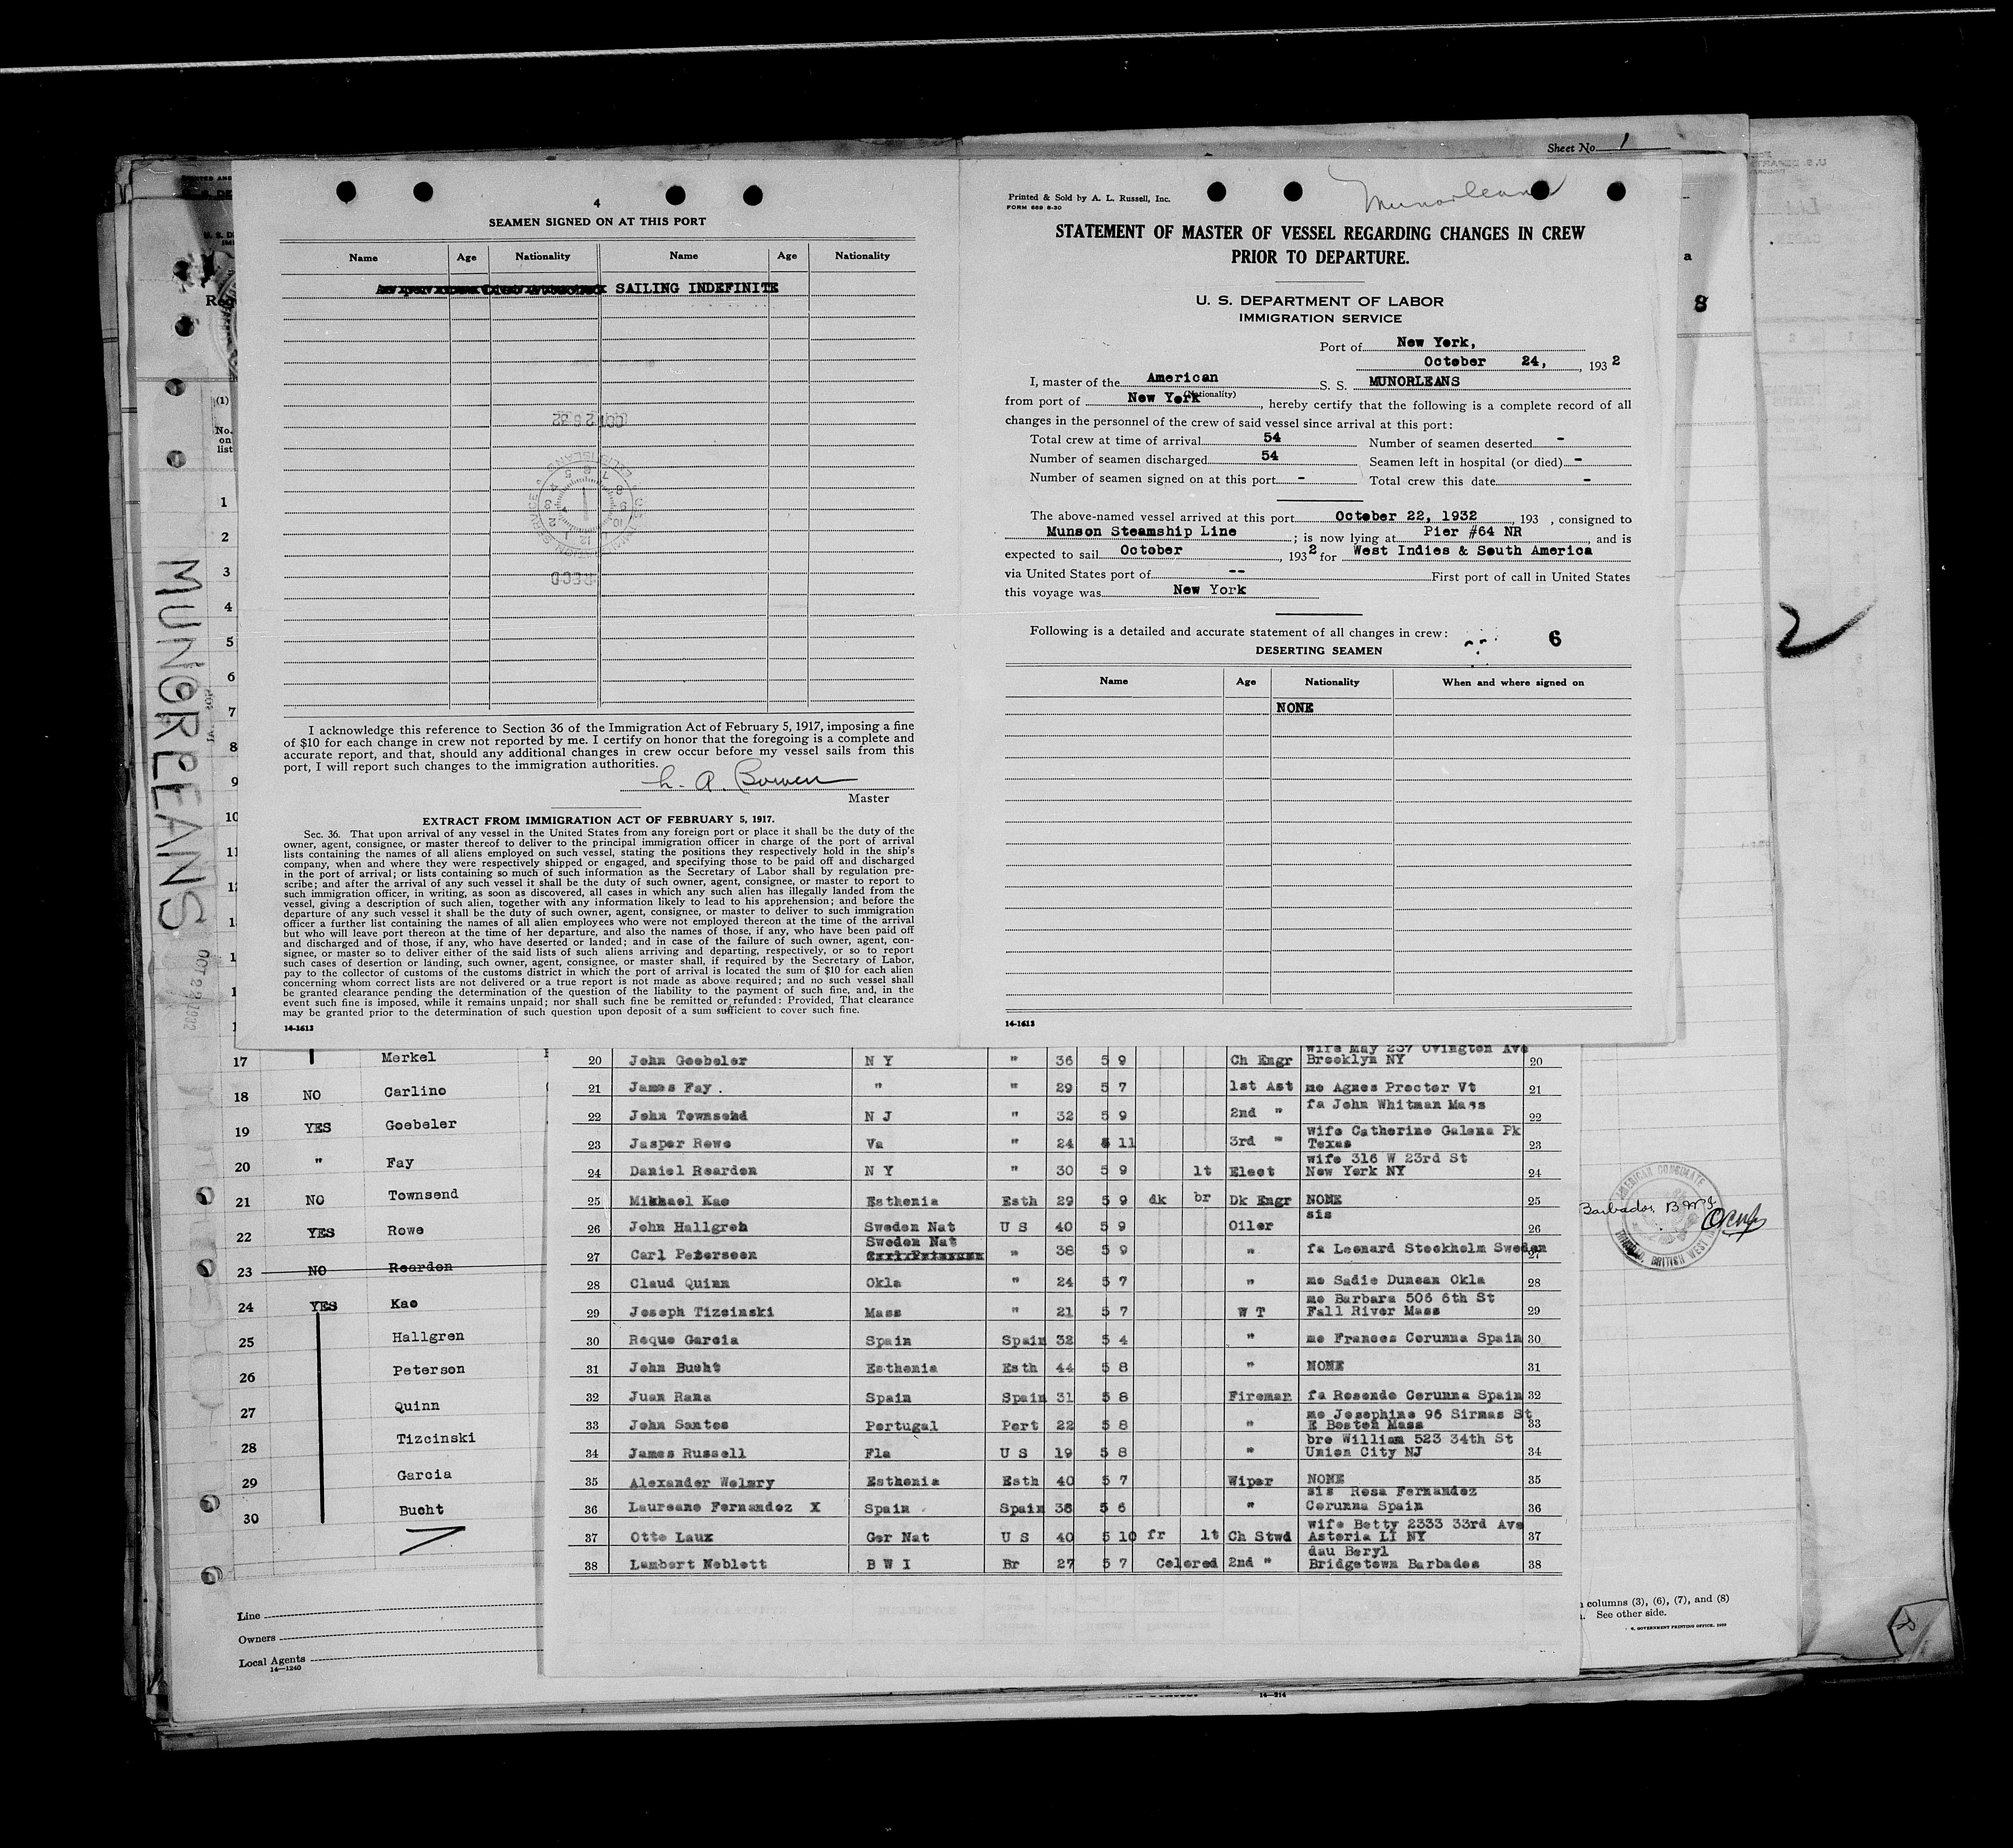 Sheet No. 1
4
SEAMEN SIGNED ON AT THIS PORT
Name Age Nationality Name Age Nationality
SAILING INDEFINITE
I acknowledge this reference to Section 36 of the Immigration Act of February 5, 1917, imposing a fine
of $10 for each change in crew not reported by me. I certify on honor that the foregoing is a complete and
accurate report, and that, should any additional changes in crew occur before my vessel sails from this
port, I will report such changes to the immigration authorities.
L. A. Bowen
Master
EXTRACT FROM IMMIGRATION ACT OF FEBRUARY 5, 1917.
Sec. 36. That upon arrival of any vessel in the United States from any foreign port or place it shall be the duty of the
owner, agent, consignee, or master thereof to deliver to the principal immigration officer in charge of the port of arrival
lists containing the names of all aliens employed on such vessel, stating the positions they respectively hold in the ship's
company, when and where they were respectively shipped or engaged, and specifying those to be paid off and discharged
in the port of arrival; or lists containing so much of such information as the Secretary of Labor shall by regulation pre-
scribe; and after the arrival of any such vessel it shall be the duty of such owner, agent, consignee, or master to report to
such immigration officer, in writing, as soon as discovered, all cases in which any such alien has illegally landed from the
vessel, giving a description of such alien, together with any information likely to lead to his apprehension; and before the
departure of any such vessel it shall be the duty of such owner, agent, consignee, or master to deliver to such immigration
officer a further list containing the names of all alien employees who were not employed thereon at the time of the arrival
but who will leave port thereon at the time of her departure, and also the names of those, if any, who have been paid off
and discharged and of those, if any, who have deserted or landed; and in case of the failure of such owner, agent, con-
signee, or master so to deliver either of the said lists of such aliens arriving and departing, respectively, or so to report
such cases of desertion or landing, such owner, agent, consignee, or master shall, if required by the Secretary of Labor,
pay to the collector of customs of the customs district in which the port of arrival is located the sum of $10 for each alien
concerning whom correct lists are not delivered or a true report is not made as above required; and no such vessel shall
be granted clearance pending the determination of the question of the liability to the payment of such fine, and, in the
event such fine is imposed, while it remains unpaid; nor shall such fine be remitted or refunded: Provided, That clearance
may be granted prior to the determination of such question upon deposit of a sum sufficient to cover such fine.
14-1613
Printed & Sold by A. L. Russell, Inc.
FORM 689 8-30
Munorleans
STATEMENT OF MASTER OF VESSEL REGARDING CHANGES IN CREW
PRIOR TO DEPARTURE.
U. S. DEPARTMENT OF LABOR
IMMIGRATION SERVICE
Port of New York,
October 24, , 193 2
I, master of the American S. S. MUNORLEANS
(Nationality)
from port of New York, hereby certify that the following is a complete record of all
changes in the personnel of the crew of said vessel since arrival at this port:
Total crew at time of arrival 54 Number of seamen deserted -
Number of seamen discharged 54 Seamen left in hospital (or died) -
Number of seamen signed on at this port - Total crew this date -
The above-named vessel arrived at this port October 22, 1932, 193 , consigned to
Munson Steamship Line ; is now lying at Pier #64 NR , and is
expected to sail October , 193 2 for West Indies & South America
via United States port of -- First port of call in United States
this voyage was New York
Following is a detailed and accurate statement of all changes in crew: 6
DESERTING SEAMEN
Name Age Nationality When and where signed on
NONE
14-1613
a
8
2
MUNORLEANS
OCT 22 1932
(1)
No.
on
list
1
2
3
4
5
6
7
8
9
10
17 Merkel
18 NO Carlino
19 YES Goebeler
20 " Fay
21 NO Townsend
22 YES Rowe
23 NO Reardon
24 YES Kao
25 Hallgren
26 Peterson
27 Quinn
28 Tizcinski
29 Garcia
30 Bucht
Line
Owners
Local Agents
14-1240
20 John Goebeler N Y " 36 5 9 Ch Engr wife May 237 Ovington Ave Brooklyn NY 20
21 James Fay . " " 29 5 7 1st Ast mo Agnes Procter Vt 21
22 John Townsend N J " 32 5 9 2nd " fa John Whitman Mass 22
23 Jasper Rowe Va " 24 5 11 3rd " wife Catherine Galena Pk Texas 23
24 Daniel Reardon N Y " 30 5 9 lt Elect wife 316 W 23rd St New York NY 24
25 Mikhael Kao Esthonia Esth 29 5 9 dk br Dk Engr NONE 25
26 John Hallgren Sweden Nat U S 40 5 9 Oiler sis 26
27 Carl Peterseen Sweden Nat " 38 5 9 " fa Leonard Stockholm Sweden 27
28 Claud Quinn Okla " 24 5 7 " mo Sadie Duncan Okla 28
29 Joseph Tizcinski Mass " 21 5 7 W T mo Barbara 506 6th St Fall River Mass 29
30 Roque Garcia Spain Spain 32 5 4 " mo Frances Corunna Spain 30
31 John Bucht Esthonia Esth 44 5 8 " NONE 31
32 Juan Rana Spain Spain 31 5 8 Fireman fa Rosendo Corunna Spain 32
33 John Santos Portugal Port 22 5 8 " mo Josephine 96 Sirmas St E Boston Mass 33
34 James Russell Fla U S 19 5 8 " bro William 523 34th St Union City NJ 34
35 Alexander Welmry Esthonia Esth 40 5 7 Wiper NONE 35
36 Laureano Fernandez X Spain Spain 38 5 6 " sis Rosa Fernandez Corunna Spain 36
37 Otto Laux Ger Nat U S 40 5 10 fr lt Ch Stwd wife Betty 2333 33rd Ave Astoria LI NY 37
38 Lambert Neblett B W I Br 27 5 7 Colored 2nd " dau Beryl Bridgetown Barbados 38
AMERICAN CONSULATE
BRITISH WEST
Barbados, B.W.I.
columns (3), (6), (7), and (8)
See other side.
GOVERNMENT PRINTING OFFICE
14-214